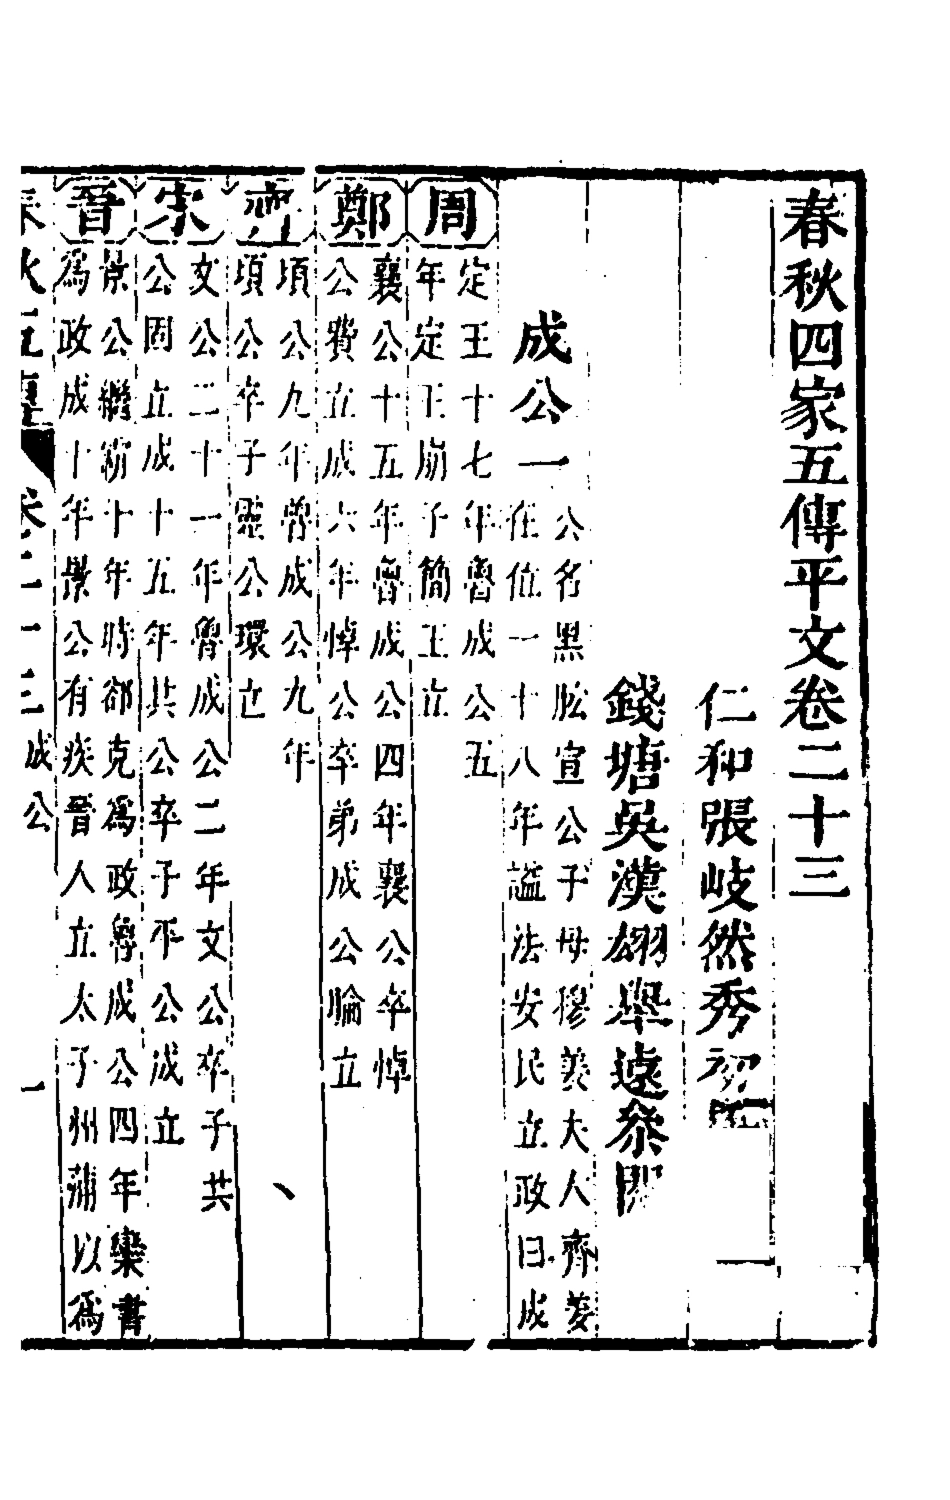 春秋四家五傳平文卷二十三
仁和張岐然秀初
錢塘吳漢翊舉遠叅閱
成公一
公名黑肱宣公子母穆姜夫人齊姜
在位一十八年諡法安民立政曰成
周
定王十七年魯成公五
年定王崩子簡王立
鄭
襄公十五年魯成公四年襄公卒悼
公費立成六年悼公卒弟成公睔立
齊
頃公九年魯成公九年
頃公卒子靈公環立
宋
文公二十一年魯成公二年文公卒子共
公固立成十五年共公卒子平公成立
晉
景公繼霸十年時郤克爲政魯成公四年欒書
爲政成十年景公有疾晉人立太子州蒲以爲
卷二十三 成公 一